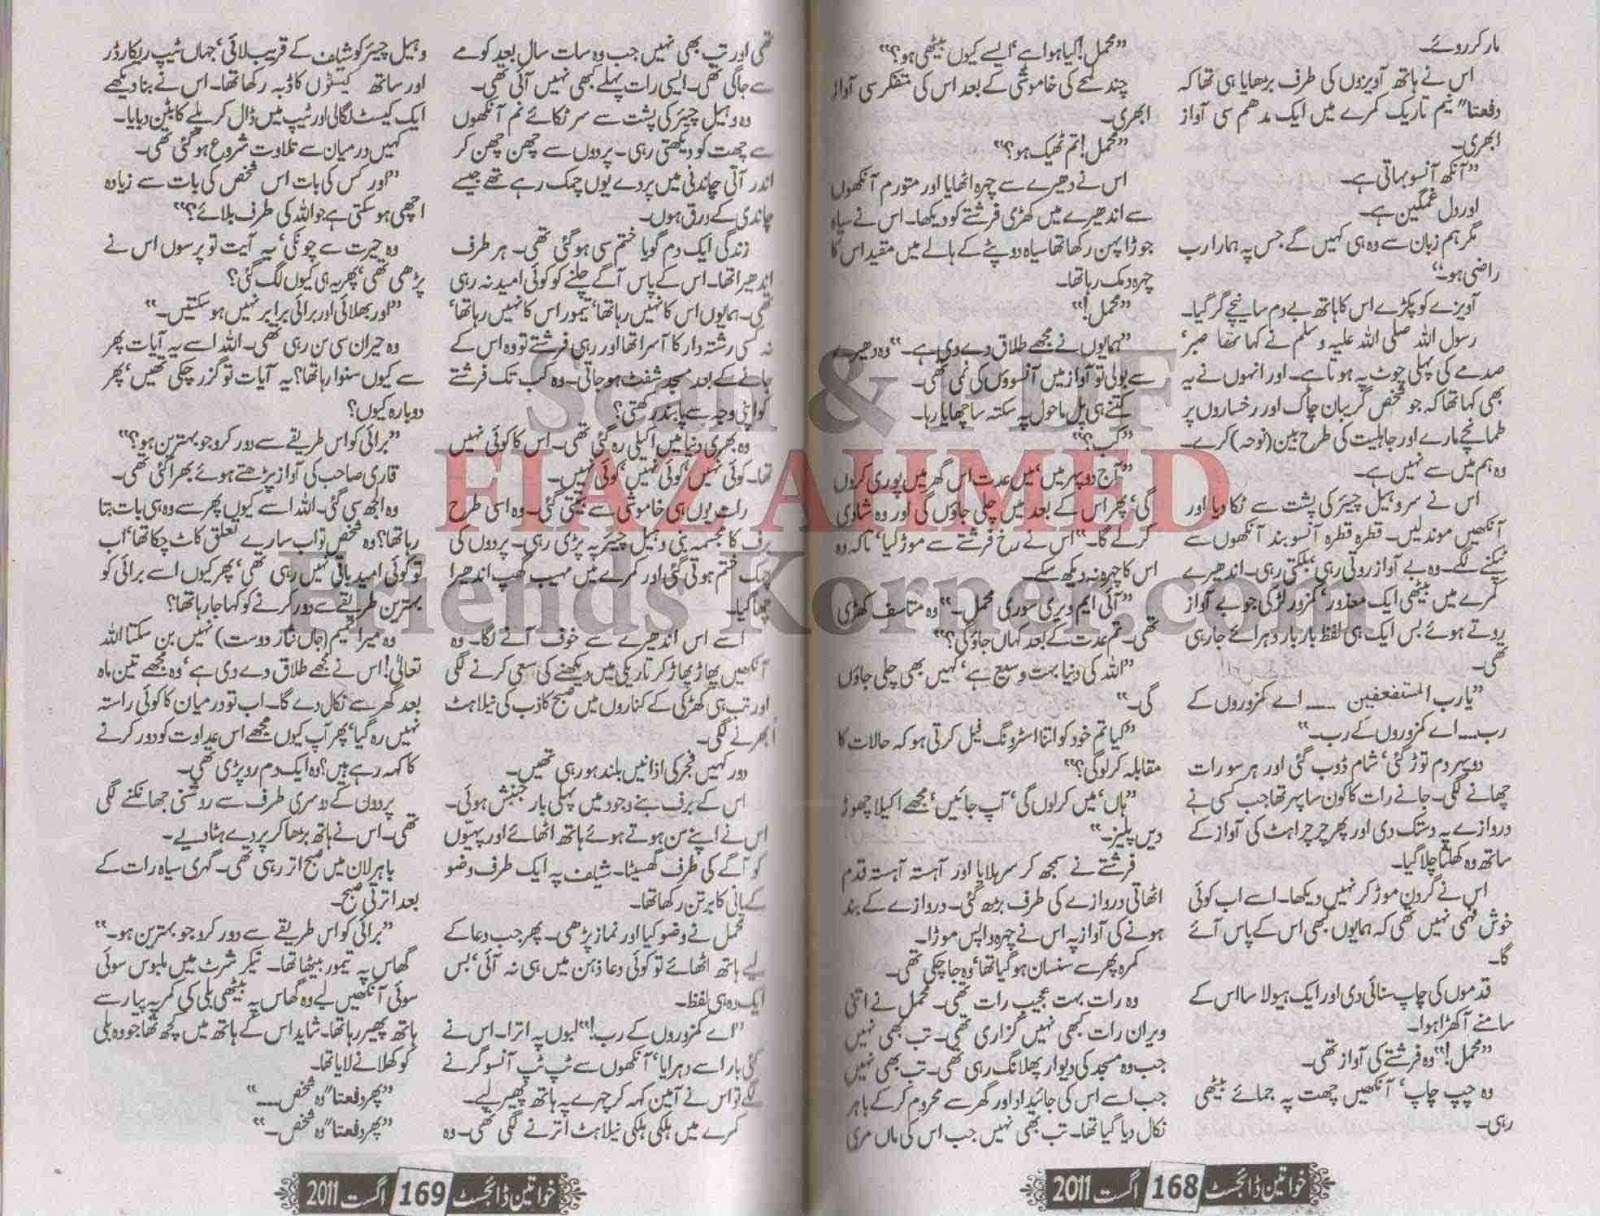 مار کر روئے۔
اس نے ہاتھ آویزوں کی طرف بڑھایا ہی تھا کہ
دفعتا" نیم تاریک کمرے میں ایک مدھم سی آواز
ابھری۔
"آنکھ آنسو بہاتی ہے۔
اور دل غمگین ہے۔
مگر ہم زبان سے وہ ہی کہیں گے جس پہ ہمارا رب
راضی ہو۔"
آویزے کو پکڑے اس کا ہاتھ بے دم سا نیچے گر گیا۔
رسول اللہ صلی اللہ علیہ وسلم نے کہا تھا 'صبر'
صدمے کی پہلی چوٹ پہ ہوتا ہے۔ اور انہوں نے یہ
بھی کہا تھا کہ جو شخص گریبان چاک اور رخساروں پر
طمانچے مارے اور جاہلیت کی طرح بین (نوحہ) کرے۔
وہ ہم میں سے نہیں ہے۔
اس نے سر وہیل چیئر کی پشت سے ٹکا دیا اور
آنکھیں موند لیں۔ قطرہ قطرہ آنسو بند آنکھوں سے
ٹپکنے لگے۔ وہ بے آواز روتی رہی، بلکتی رہی۔ اندھیرے
کمرے میں بیٹھی ایک معذور، کمزور لڑکی جو بے آواز
روتے ہوئے بس ایک ہی لفظ بار بار دہرائے جا رہی
تھی۔
"یا رب المستضعفین ۔۔۔۔ اے کمزوروں کے
رب۔۔۔ اے کمزوروں کے رب۔"
دوپہر دم توڑ گئی، شام ڈوب گئی اور ہر سو رات
چھانے لگی۔ جانے رات کا کون سا پہر تھا جب کسی نے
دروازے پہ دستک دی اور پھر چرچراہٹ کی آواز کے
ساتھ وہ کھلتا چلا گیا۔
اس نے گردن موڑ کر نہیں دیکھا۔ اسے اب کوئی
خوش فہمی نہیں تھی کہ ہمایوں کبھی اس کے پاس آئے
گا۔
قدموں کی چاپ سنائی دی اور ایک ہیولا سا اس کے
سامنے آکھڑا ہوا۔
"محمل!" وہ فرشتے کی آواز تھی۔
وہ چپ چاپ، آنکھیں چھت پہ جمائے بیٹھی
رہی۔
"محمل! کیا ہوا ہے، ایسے کیوں بیٹھی ہو؟"
چند لمحے کی خاموشی کے بعد اس کی متفکر سی آواز
ابھری۔
"محمل! تم ٹھیک ہو؟"
اس نے دھیرے سے چہرہ اٹھایا اور متورم آنکھوں
سے اندھیرے میں کھڑی فرشتے کو دیکھا۔ اس نے سیاہ
جوڑا پہن رکھا تھا، سیاہ دوپٹے کے ہالے میں مقید اس کا
چہرہ دمک رہا تھا۔
"محمل!"
"ہمایوں نے مجھے طلاق دے دی ہے۔" وہ دھیرے
سے بولی تو آواز میں آنسوؤں کی نمی تھی۔
کتنے ہی پل ماحول پہ سکتہ سا چھایا رہا۔
"کب؟"
"آج دوپہر میں، میں عدت اس گھر میں پوری کروں
گی، پھر اس کے بعد میں چلی جاؤں گی اور وہ شادی
کرلے گا۔" اس نے رخ فرشتے سے موڑ لیا، تاکہ وہ
اس کا چہرہ نہ دیکھ سکے۔
"آئی ایم ویری سوری محمل۔" وہ متاسف کھڑی
تھی۔ "تم عدت کے بعد کہاں جاؤ گی؟"
"اللہ کی دنیا بہت وسیع ہے، کہیں بھی چلی جاؤں
گی۔"
"کیا تم خود کو اتنا اسٹرونگ فیل کرتی ہو کہ حالات کا
مقابلہ کر لوگی؟"
"ہاں، میں کرلوں گی، آپ جائیں، مجھے اکیلا چھوڑ
دیں پلیز۔"
فرشتے نے سمجھ کر سر ہلایا اور آہستہ آہستہ قدم
اٹھاتی دروازے کی طرف بڑھ گئی۔ دروازے کے بند
ہونے کی آواز پہ اس نے چہرہ واپس موڑا۔
کمرہ پھر سے سنسان ہو گیا تھا، وہ جا چکی تھی۔
وہ رات بہت عجیب رات تھی۔ محمل نے اتنی
ویران رات کبھی نہیں گزاری تھی۔ تب بھی نہیں
جب وہ مسجد کی دیوار پھلانگ رہی تھی۔ تب بھی نہیں
جب اسے اس کی جائیداد اور گھر سے محروم کرکے باہر
نکال دیا گیا تھا۔ تب بھی نہیں جب اس کی ماں مری
خواتین ڈائجسٹ 168 اگست 2011
تھی اور تب بھی نہیں جب وہ سات سال بعد کومے
سے جاگی تھی۔ ایسی رات پہلے کبھی نہیں آئی تھی۔
وہ وہیل چیئر کی پشت سے سر ٹکائے نم آنکھوں
سے چھت کو دیکھتی رہی۔ پردوں سے چھن چھن کر
اندر آتی چاندنی میں پردے یوں چمک رہے تھے جیسے
چاندی کے ورق ہوں۔
زندگی ایک دم گویا ختم سی ہو گئی تھی۔ ہر طرف
اندھیرا تھا۔ اس کے پاس آگے چلنے کو کوئی امید نہ رہی
تھی۔ ہمایوں اس کا نہیں رہا تھا، تیمور اس کا نہیں رہا تھا،
نہ کسی رشتہ دار کا آسرا تھا اور رہی فرشتے تو وہ اس کے
جانے کے بعد مسجد شفٹ ہو جاتی۔ وہ کب تک فرشتے
کو اپنی وجہ سے پابند رکھتی؟
وہ بھری دنیا میں اکیلی رہ گئی تھی۔ اس کا کوئی نہیں
تھا۔ کوئی نہیں، کوئی نہیں، کوئی نہیں۔
رات یوں ہی خاموشی سے بیتتی گئی۔ وہ اسی طرح
برف کا مجسمہ بنی وہیل چیئر پہ پڑی رہی۔ پردوں کی
چمک ختم ہوتی گئی اور کمرے میں مہیب گھپ اندھیرا
چھا گیا۔
اسے اس اندھیرے سے خوف آنے لگا۔ وہ
آنکھیں پھاڑ پھاڑ کر تاریکی میں دیکھنے کی سعی کرنے لگی
اور تب ہی کھڑکی کے کناروں میں صبح کاذب کی نیلاہٹ
ابھرنے لگی۔
دور کہیں فجر کی اذانیں بلند ہو رہی تھیں۔
اس کے برف بنے وجود میں پہلی بار جنبش ہوئی۔
اس نے اپنے سن ہوتے ہوئے ہاتھ اٹھائے اور پہیوں
کو آگے کی طرف گھسیٹا۔ شیلف پہ ایک طرف وضو
کے پانی کا برتن رکھا تھا۔
محمل نے وضو کیا اور نماز پڑھی۔ پھر جب دعا کے
لیے ہاتھ اٹھائے تو کوئی دعا ذہن میں ہی نہ آئی، بس
ایک وہ ہی لفظ۔
"اے کمزوروں کے رب!" لبوں پہ اترا۔ اس نے
کئی بار اسے دہرایا، آنکھوں سے ٹپ ٹپ آنسو گرنے
لگے تو اس نے آمین کہہ کر چہرے پہ ہاتھ پھیر لیے۔
کمرے میں ہلکی ہلکی نیلاہٹ اترنے لگی تھی۔ وہ
وہیل چیئر کو شیلف کے قریب لائی، جہاں ٹیپ ریکارڈر
اور ساتھ کیسٹوں کا ڈبہ رکھا تھا۔ اس نے بنا دیکھے
ایک کیسٹ نکالی اور ٹیپ میں ڈال کر پلے کا بٹن دبایا۔
کہیں درمیان سے تلاوت شروع ہو گئی تھی۔
"اور کس کی بات اس شخص کی بات سے زیادہ
اچھی ہو سکتی ہے جو اللہ کی طرف بلائے؟"
وہ حیرت سے چونکی، یہ آیت تو پرسوں اس نے
پڑھی تھی، پھر یہ ہی کیوں لگ گئی؟
"اور بھلائی اور برائی برابر نہیں ہو سکتیں۔"
وہ حیران سی سن رہی تھی۔ اللہ اسے یہ آیات پھر
سے کیوں سنوا رہا تھا؟ یہ آیات تو گزر چکی تھیں، پھر
دوبارہ کیوں؟
"برائی کو اس طریقے سے دور کرو جو بہترین ہو؟"
قاری صاحب کی آواز پڑھتے ہوئے بھرا گئی تھی۔
وہ الجھ سی گئی۔ اللہ اسے کیوں پھر سے وہ ہی بات بتا
رہا تھا؟ وہ شخص تو اب سارے تعلق کاٹ چکا تھا، اب
تو کوئی امید باقی نہیں رہی تھی، پھر کیوں اسے برائی کو
بہترین طریقے سے دور کرنے کو کہا جا رہا تھا؟
وہ میرا حمیم (جاں نثار دوست) نہیں بن سکتا اللہ
تعالیٰ! اس نے مجھے طلاق دے دی ہے، وہ مجھے تین ماہ
بعد گھر سے نکال دے گا۔ اب تو درمیان کا کوئی راستہ
نہیں رہ گیا، پھر آپ کیوں مجھے اس عداوت کو دور کرنے
کا کہہ رہے ہیں؟ وہ ایک دم رو پڑی تھی۔
پردوں کے دوسری طرف سے روشنی جھانکنے لگی
تھی۔ اس نے ہاتھ بڑھا کر پردے ہٹا دیے۔
باہر لان میں صبح اتر رہی تھی۔ گہری سیاہ رات کے
بعد اترتی صبح۔
"برائی کو اس طریقے سے دور کرو جو بہترین ہو۔"
گھاس پہ تیمور بیٹھا تھا۔ نیکر شرٹ میں ملبوس سوئی
سوئی آنکھیں لیے وہ گھاس پہ بیٹھی بلی کی کمر پہ پیار سے
ہاتھ پھیر رہا تھا۔ شاید اس کے ہاتھ میں کچھ تھا جو وہ بلی
کو کھلانے لایا تھا۔
"پھر دفعتا" وہ شخص۔۔۔۔"
"پھر دفعتا" وہ شخص۔"
خواتین ڈائجسٹ 169 اگست 2011
Scan & PDF
FIAZ AHMED
Friends Korner.com